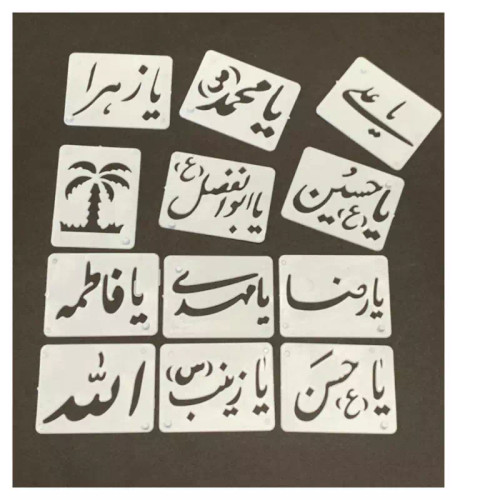 یا زهرا
یا محمد (ص)
یا علی
یا ابوالفضل (ع)
یا حسین (ع)
یا فاطمه
یا مهدی
یا رضا
الله
یا زینب (س)
یا حسن (ع)